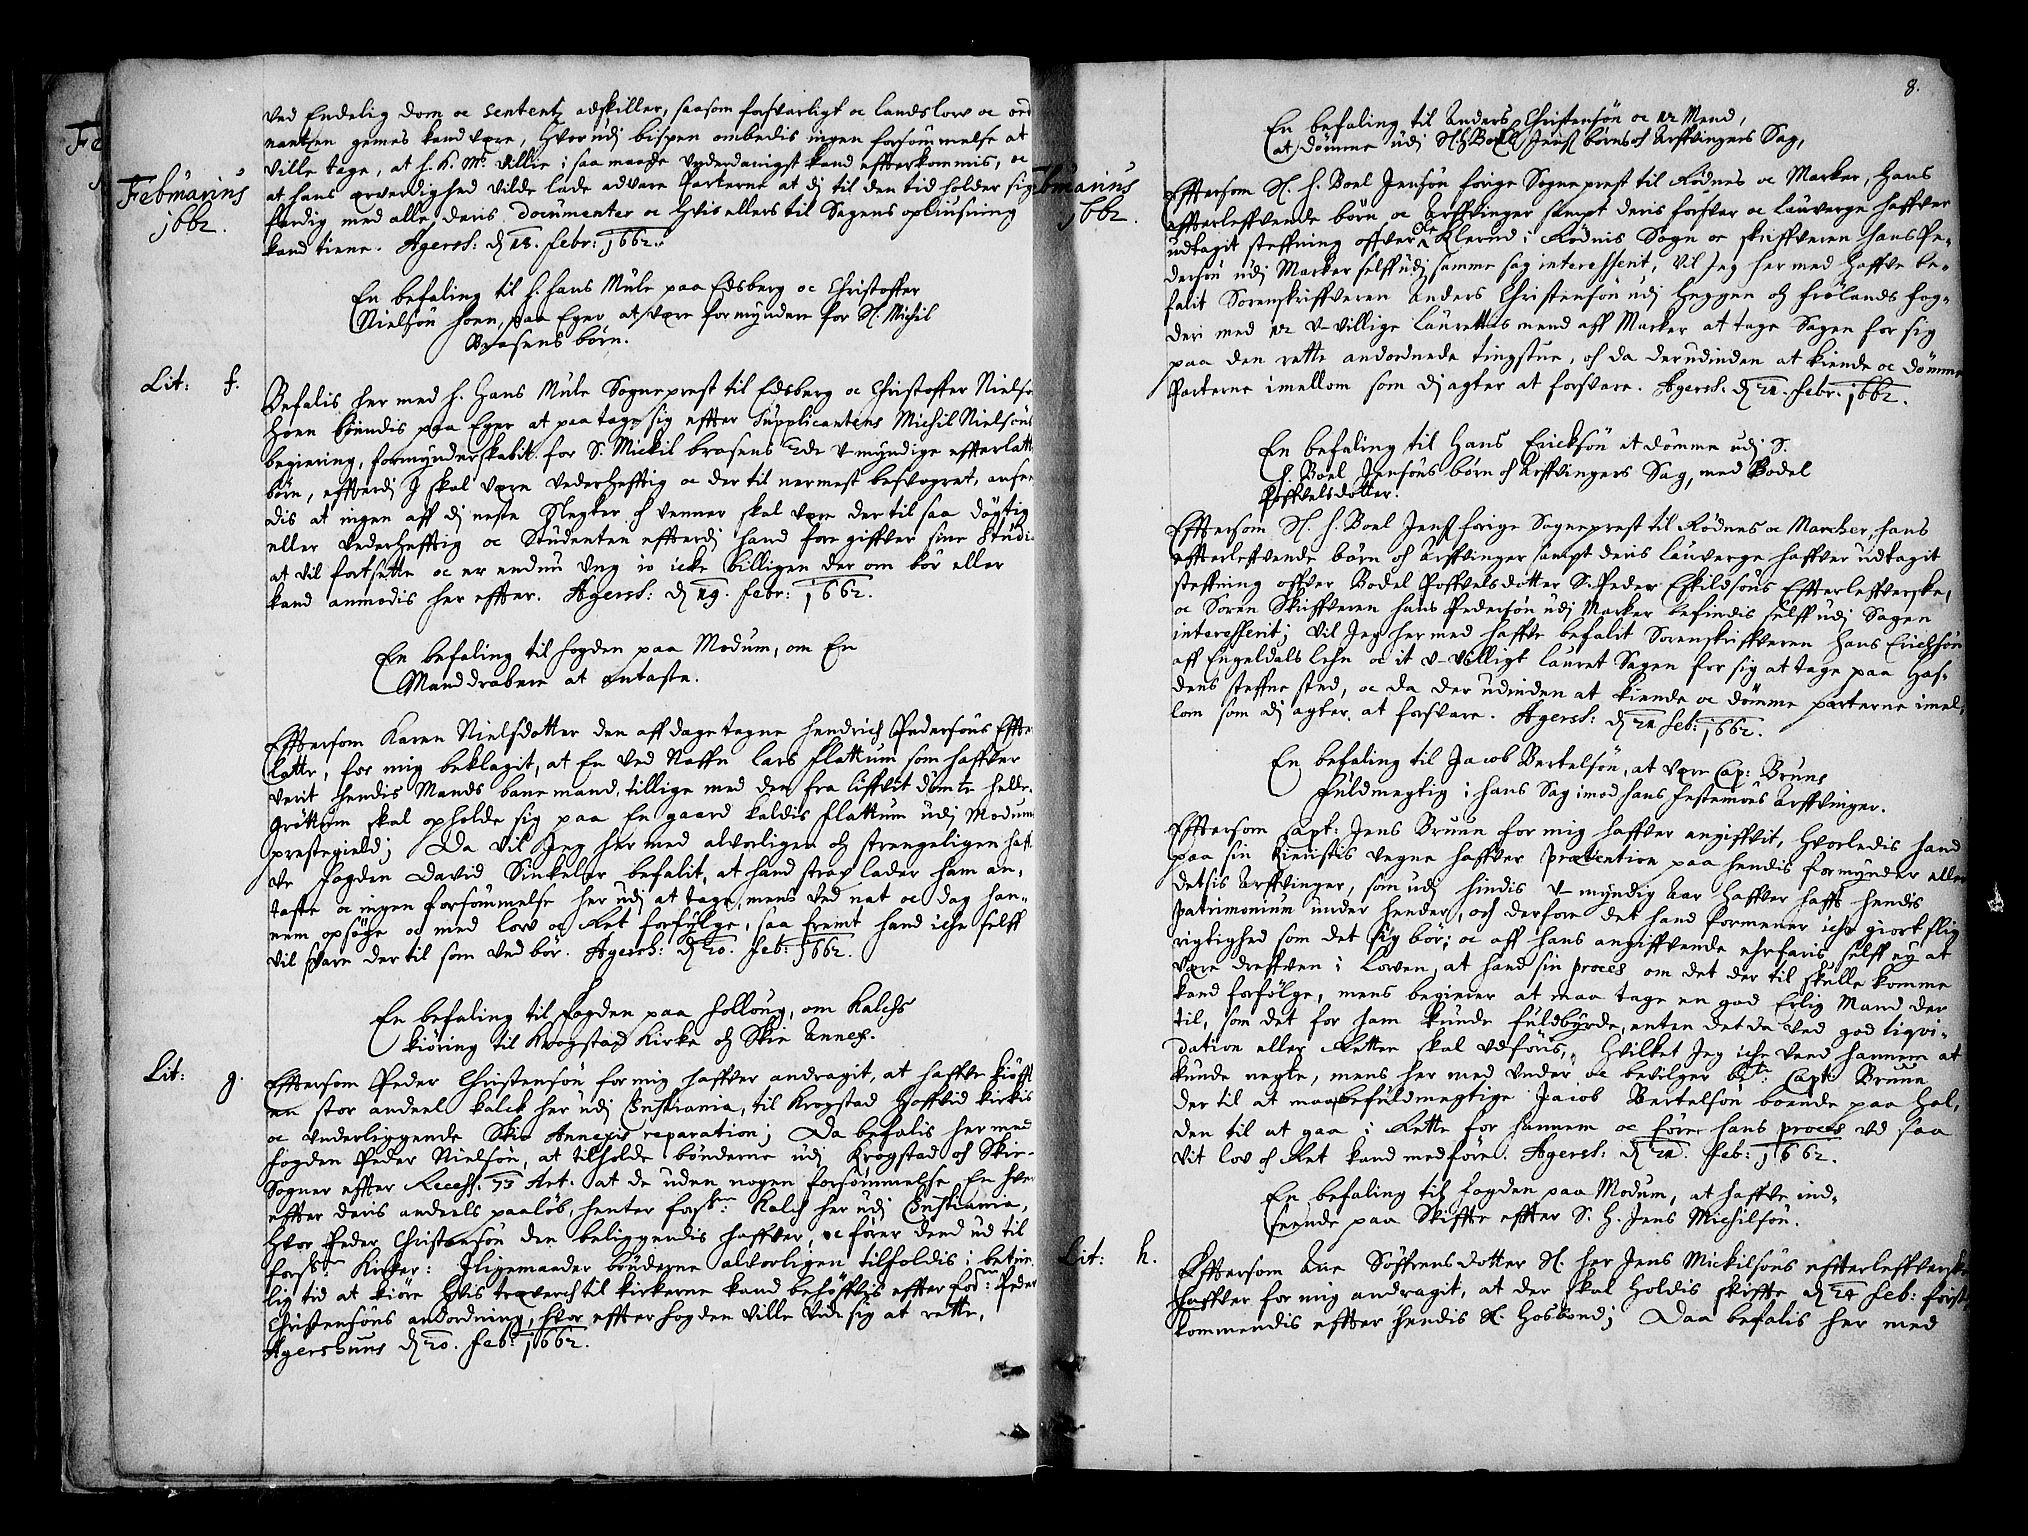 Februarius
1662.
ved Endelig dom oc sententz adskiller, saasom forsvarligt oc landslow oc ord
nantzen gemes kand være, hvorudj bispen ombedis ingen forsömmelse at
ville tage, at h. K. Mt. villie i saa maade vnderdanigst kand effterkommis, oc
at hans ærverdighed vilde lade advare Parterne at dj til den tid holder sig
færdig med alle deris documenter oc hvis ellers til Sagens opliusning
kand tiene. Agersh: d 18. febr: 1662.
En befaling til h. Hans Mule paa Edsberg oc Christoffer
Nielsön hoen, paa Eger at være formyndere for Sl. Michil
Brasens börn.
Lit: f.
Befalis her med h. Hans Mule Sogneprest til Edsberg oc Christoffer Nielsø
Hoen boendis paa Eger at paatage sig effter Supplicantens Michil Nielsöns
begiering, formynderskabit for S. Mickil brasens Ede v-myndige efferlatte
börn, efferdj I skal være vederhefftig oc der til nermest besvogret, anse-
dis at ingen aff dj neste Slegter oc venner skal være der til saa dögtig
eller vederhefftig oc Studenten effterdj hand foregiffver sine Studi-
at vil fortsette oc er endnu Vng io icke billigen der om bör eller
kand anmodis her effter. Agersh: d 19. febr: 1662.
En befaling til fogden paa Modum, om En
Manddrabere at antaste.
Effersom Karen Nielsdotter den aff dage tagne Hendrich Pedersöns Effte
latte, for mig beklagit, at En ved Naffn Lars Flattum som haffver
verit hendis Mands banemand, tillige med den fra liffvit dömte Helle
Gröttum skal opholde sig paa En gaard kaldis Flattum udj Modum
prestegield; Da vil Jeg her med alvorligen och strengeligen haff
ve fogden David Sinkeler befalit, at hand strax lader ham an-
taste oc ingen forsömmelse her udj at tage, mens ved nat oc dag han-
nem opsöge oc med low oc Ret forfölge, saa fremt hand iche selff
vil svare der til som ved bör. Agersh: d 20. feb: 1662.
En befaling til fogden paa folloug, om Kalchs
kiöring til Krogstad Kirke och Skie Annex.
Lit: g.
Effersom Peder Christensön for mig haffver andragit, at haffve kiöfft
en stor andeel kalck her udj Christiania, til Krogstad Hoffvid kirkis
oc vnderliggende Skie Annexis reparation; Da befalis her med
fogden Peder Nielsön, at tilholde bönderne udj Krogstad och Skie-
Sogner effter Recess: 73 Art: at de uden nogen forsömmelse En hver
effter deris andeels paalöb, henter forsk: Kalch her udj Christiania,
hvor Peder Christensön den beliggendis haffver, oc förer dend ud til
forsk: Kirker: Iligemaader bönderne alvorligen tilholdis i betim-
lig tid at kiöre hvis træverch til kirkerne kand behöffvis effter fors: Peder
Christensöns andordning, hvor effter fogden ville vide sig at rette,
Agershuus d 20. feb: 1662.
8.
Februarius
1662.
En befaling til Anders Christensön oc 12 Mend,
at dömme udj Sl. h. Boel Jens börns och Arffvingers Sag,
Effersom Sl. h. Boel Jensön forige Sogneprest til Rödnes oc Marker, hans
effterleffvende börn oc Arffvinger sampt deris forsvar oc lauverge haffver
udtagit steffning offver Ole Klerud i Rödnis Sogn oc skriffveren Hans Pe-
dersön udj Marker selff udj samme sag interesserit, vil Jeg her med haffve be-
falit Sorenskriffveren Anders Christensön udj Heggen och frölands fog-
deri med 12 v-villige laurettis mend aff Marker at tage Sagen for sig
paa den rette andordnede tingstue, och da der udinden at kiende oc dömme
Parterne imellom som dj agter at forsvare. Agersh: d 21. febr: 1662.
En befaling til Hans Erickson at dömme udj S.
h. Boel Jensöns börn och Arffvingers Sag, med Bodel
Poffvelsdotter.
Effersom Sl. h. Boel Jens forige Sogneprest til Rödnes oc Marcher, hans
effterleffvende börn och Arffvinger sampt deris lauverge haffver udtagit
steffning offver Bodel Poffvelsdotter S. Peder Eskildsöns Effterleffverske,
oc Soren Skriffveren Hans Pedersön udj Marker befindis selff udj Sagen
interesserit; vil Jeg her med haffve befalit Sorenskriffveren Hans Erichsön
aff Engeldals lehn oc it v-villigt lauret Sagen for sig at tage paa Gaf-
dens steffne sted, oc da der udinden at kiende oc dömme parterne imel-
lom som dj agter at forsvare. Agersh: d 21 feb: 1662.
En befaling til Jacob Bertelsön, at være Cap: Bruns
fuldmegtig i hans Sag imod hans festemöes Arffvinger.
Effersom Capt: Jens Bruun for mig haffver angiffvit, hvorledis hand
paa sin kieristis vegne haffver prætention paa hendis formynder eller
detsis Arffvinger, som udj hindis v-myndig Aar haffver hafft hendis
patrimonium under hender, och derfore det hand formener iche giort slig
rigtighed som det sig bör; oc aff hans angiffvende ehrfaris, selff ey at
være dreffven i Lowen, at hand sin proces om det der til skulle komme
kand forfölge, mens begierer at maa tage en god Erlig Mand der
til, som det for ham kunde fuldbyrde, enten det da ved god liqvi-
dation eller Retter skal vdföris, hvilket Jeg iche veed hannem at
kunde negte, mens her med vnder oc bevilger be:te Capt: Bruun
der til at maa befuldmegtige Jacob Bertelsön boende paa Hol-
den til at gaa i Rette for hannem oc förer hans proces vd saa
vit lov och Ret kand medföre. Agersh: d 21. feb: 1662.
En befaling til fogden paa Modum, at haffve ind-
seende paa Skiffte effter S. H. Jens Michilsön.
Lit: h.
Effersom Ane Söffrensdotter Sl. her Jens Mickilsöns effterleffverske
haffver for mig andragit, at der skal holdis skiffte d 24 feb: först
kommendis effter hendis Sl. hosbond; Daa befalis her med